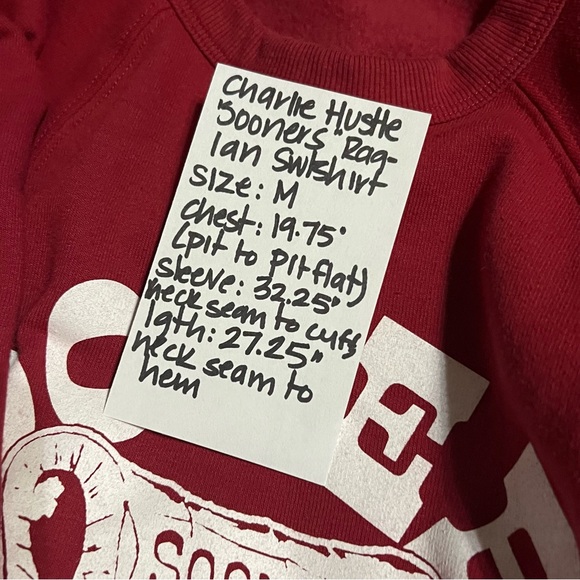 Charlie Hustle
Sooners "Rag-
lan Swtshirt
Size: M
Chest: 19.75"
(pit to pit flat)
sleeve: 32.25"
neck seam to cuffs
lgth: 27.25"
neck seam to
hem